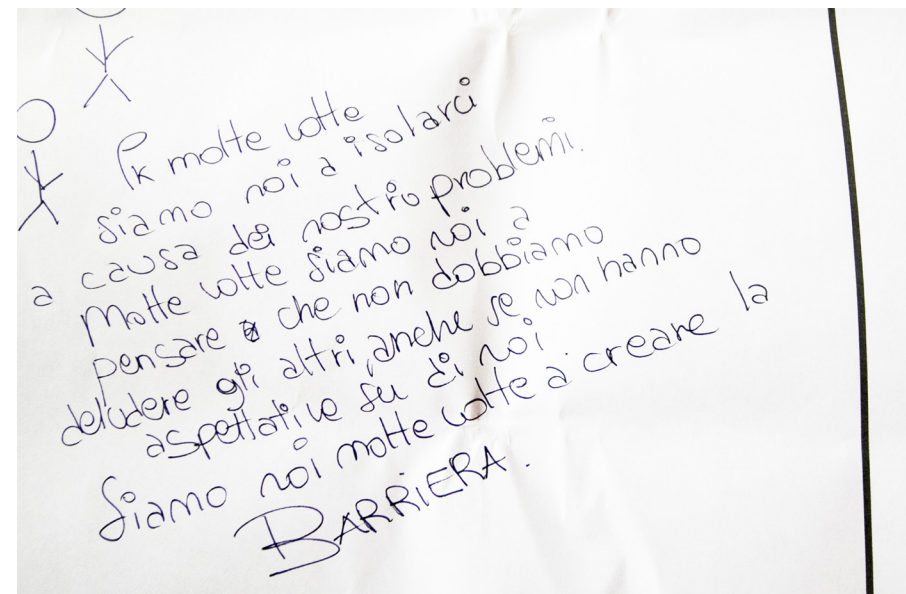 Pk molte volte
siamo noi a isolarci
a causa dei nostro problemi.
Molte volte siamo noi a
pensare che non dobbiamo
deludere gli altri, anche se non hanno
aspettative su di noi.
Siamo noi molte volte a creare la
BARRIERA.